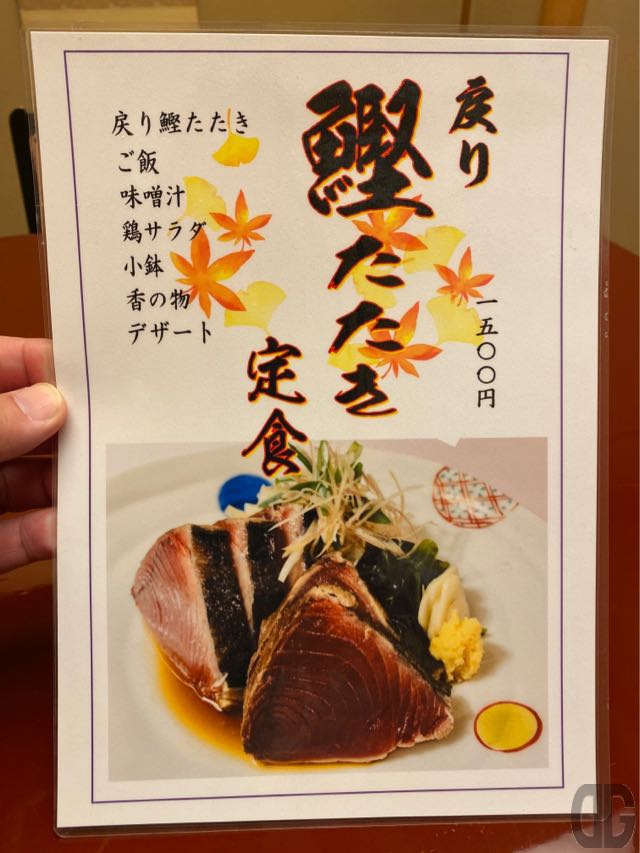 戻り
鰹たたき
定食
一五〇〇円
戻り鰹たたき
ご飯
味噌汁
鶏サラダ
小鉢
香の物
デザート
DG